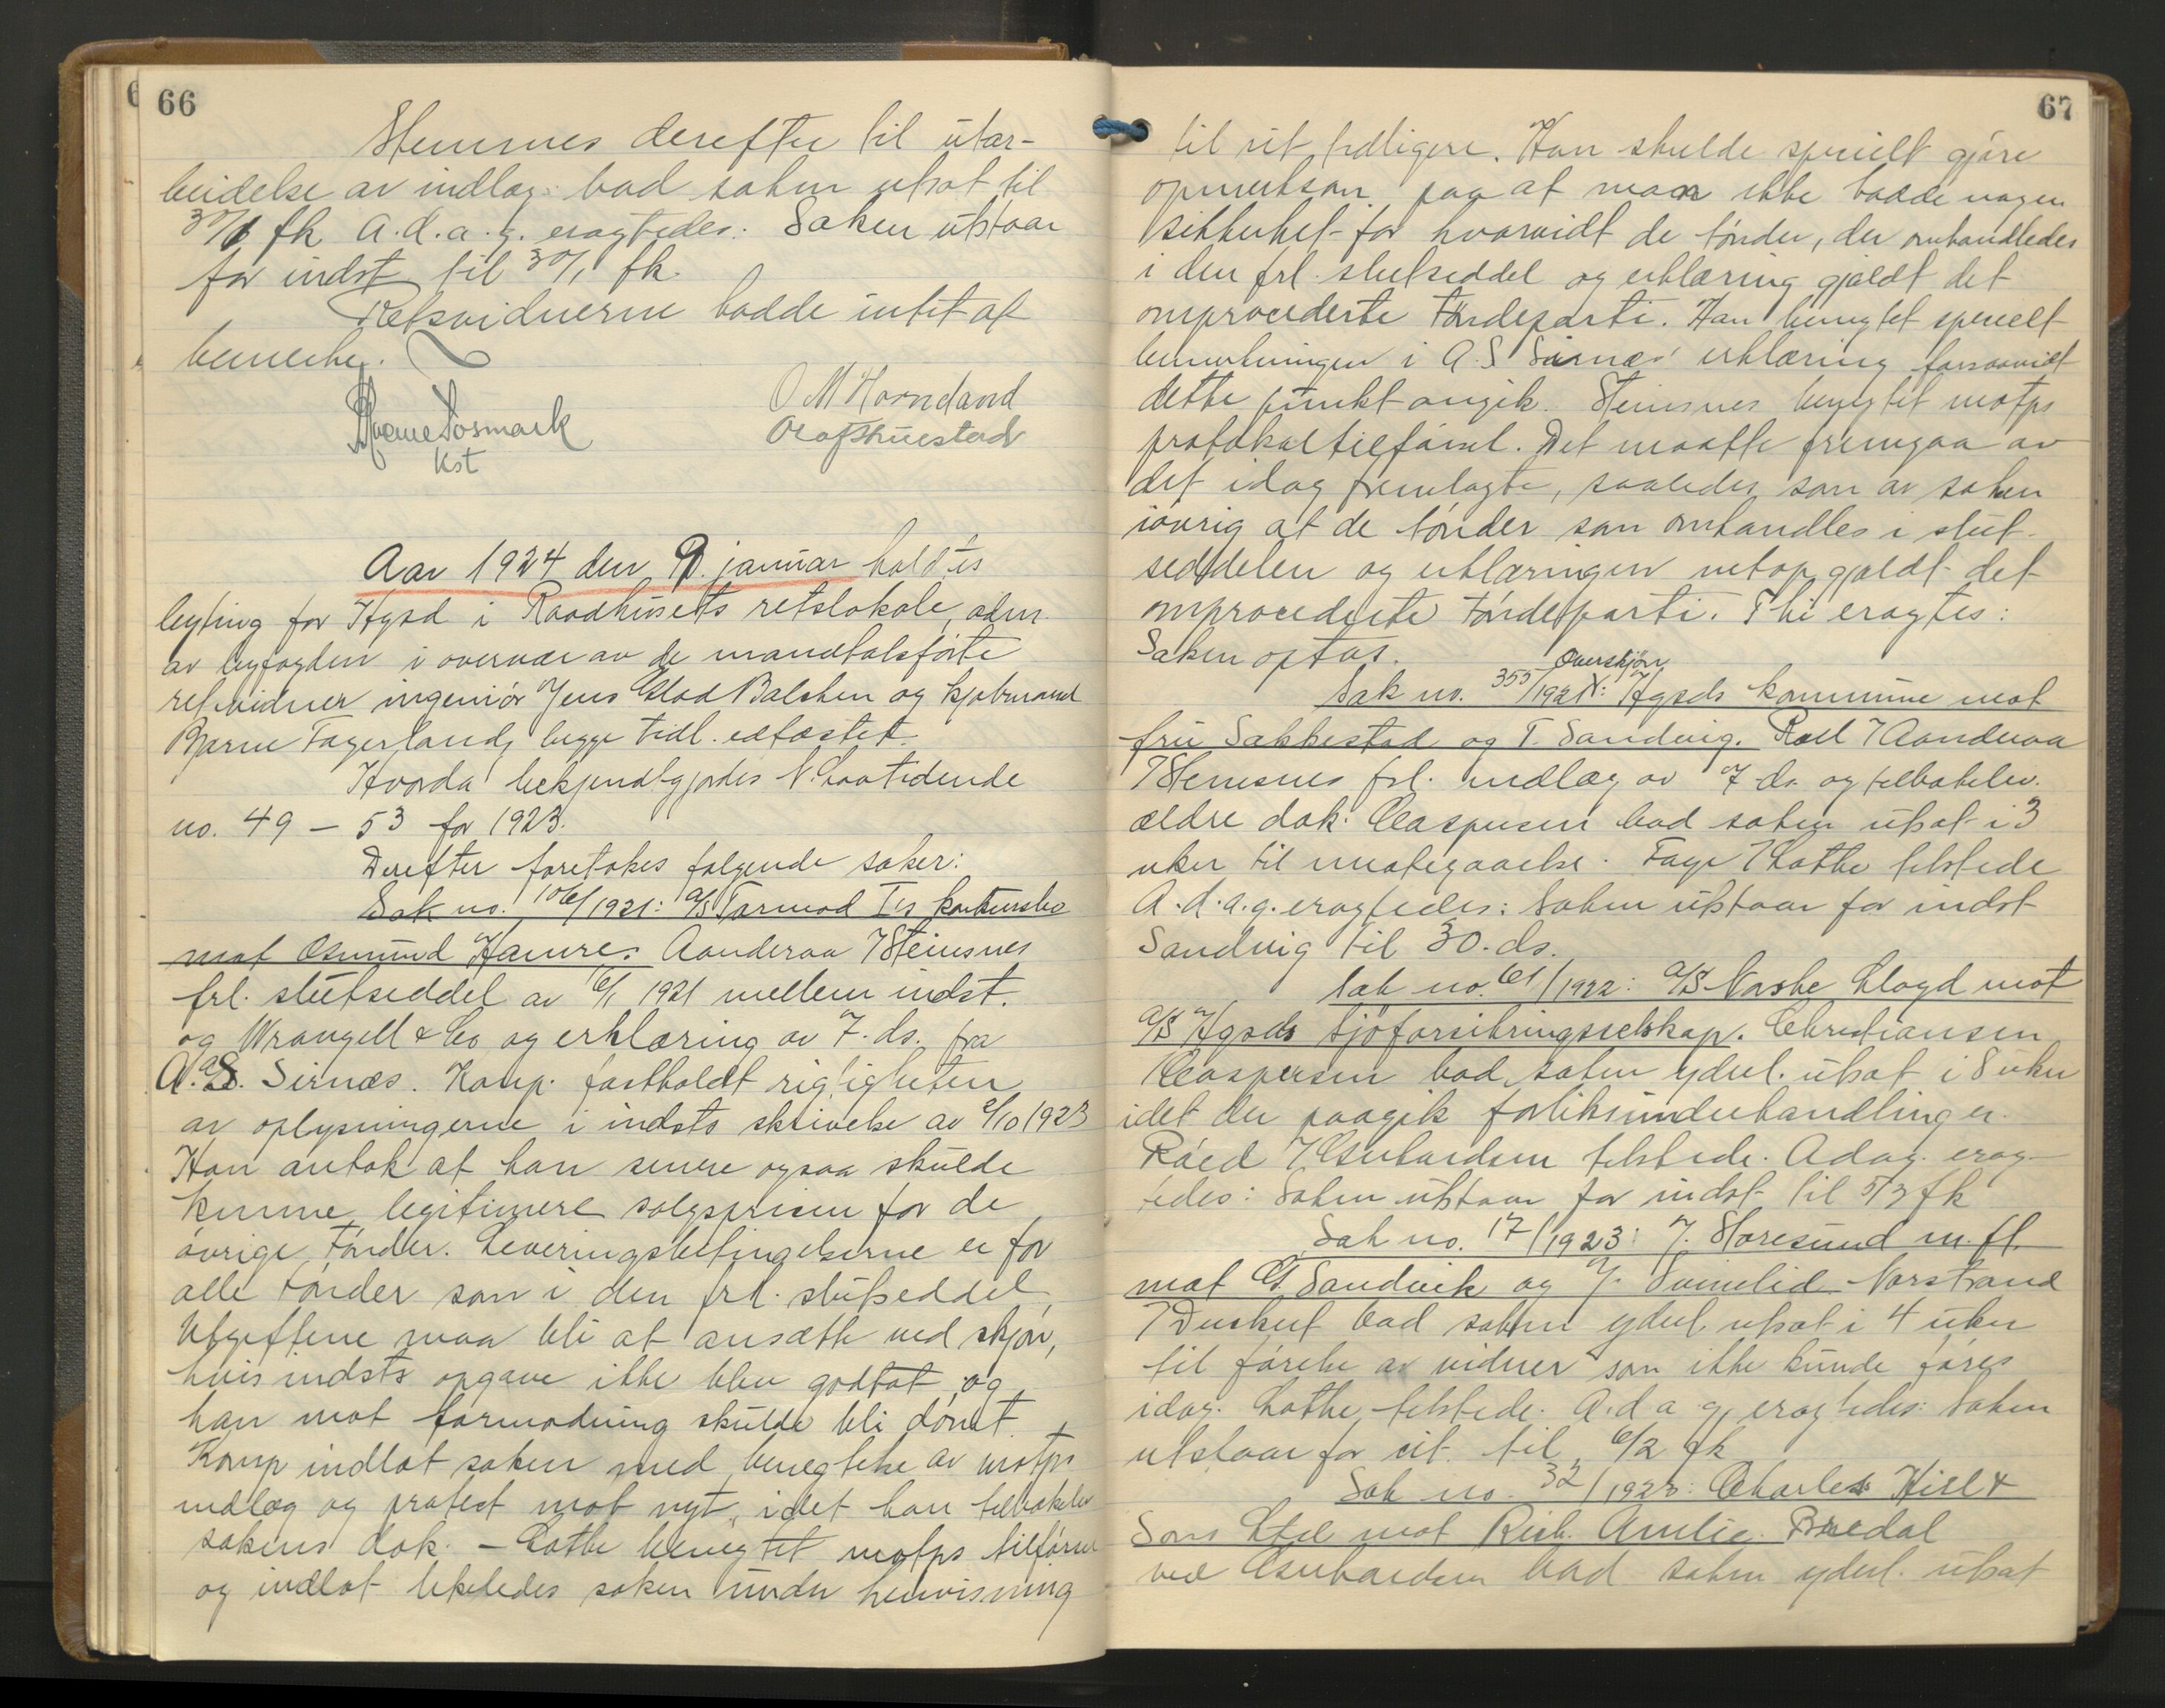 66
Steinsnes derefter til utar-
beidelse av indlæg bad saken utsat til
30/1 fk. A.d.a.g. eragtedes: Saken utstaar
for indst. til 30/1 fk.
Retsvidnerne hadde intet at
bemerke.
O M Horneland
Kst
Aar 1924 den 9. januar holdtes
byting for Hgsd i Raadhusets retslokale, adm.
av byfogden i overvær av de mandtalsførte
retsvidner ingeniør Jens Glad Balchen og kjøbmand
Bjarne Fagerland, begge tidl. edfæstet.
Hvorda bekjendtgjordes N. Lovtidende
no. 49 – 53 for 1923.
Derefter foretokes følgende saker:
Sak no. 106/1921: A/S Tormod I's konkursbo
mot Osmund Hamre. Aanderaa / Steinsnes
frl. slutseddel av 6/1 1921 mellem indst.
og Wrangell & Co og erklæring av 7. ds. fra
A. S. Sirnæs. Komp. fastholdt rigtigheten
av oplysningerne i indsts skrivelse av 2/10 1923
Han antok at han senere ogsaa skulde
kunne legitimere salgsprisen for de
øvrige tønder. Leveringsbetingelserne er for
alle tønder som i den frl. slutseddel,
Utgiftene maa bli at ansætte ved skjøn,
hvis indsts opgave ikke blev godtat og
han mot formodning skulde bli dømt.
Komp indlot saken med benegtelse av motps
indlæg og protest mot nyt, idet han tilbakelev
sakens dok. – Lothe benegtet motps tilførsel
og indlot likeledes saken under henvisning
67
til sit tidligere. Han skulde specielt gjøre
opmerksom paa at man ikke hadde nogen
sikkerhet for hvorvidt de tønder, der omhandledes
i den frl. slutseddel og erklæring gjaldt det
omprocederte tøndeparti. Han benegtet specielt
bemerkningen i A. S Sirnæs' erklæring forsaavidt
dette punkt angik. Steinsnes benegtet motps
protokoltilførsel. Det maatte fremgaa av
det idag fremlagte, saaledes som av saken
iøvrig at de tønder som omhandles i slut-
seddelen og erklæringen netop gjaldt det
omprocederte tøndeparti. Thi eragtes:
Saken optas.
Overskjøn
Sak no. 355/1921: Hgsds kommune mot
fru Sakkestad og T. Sandvig. Røed / Aanderaa
/ Steinsnes frl. indlæg av 7 ds. og tilbakelev.
ældre dok. Caspersen bad saken utsat i 3
uker til imøtegaaelse. Fage / Lothe tilstede
A.d.a.g. eragtedes: Saken utstaar for indst
Sandvig til 30. ds.
Sak no. 61/1922: A/S Norske Lloyd mot
A/S Hgsds Sjøforsikringsselskap. Christiansen
/ Caspersen bad saken yderl. utsat i 8 uker
idet der paagik forliksunderhandlinger.
Røed / Eserhardsen tilstede. A.d.a.g. erag-
tedes: Saken utstaar for indst til 5/3 fk
Sak no. 17/1923: J. Storesund m. fl.
mot G. Sandvik og J. Svinelid Norstrand
/ Duckert bad saken yderl utsat i 4 uker
til førelse av vidner som ikke kunde føres
idag. Lothe tilstede. A.d.a.g. eragtedes: Saken
utstaar for cit. til 6/2 fk
Sak no. 32/1923: Charles Hill &
Sons Ltd mot Rich. Amlie. Bredal
ved bad saken yderl. utsat